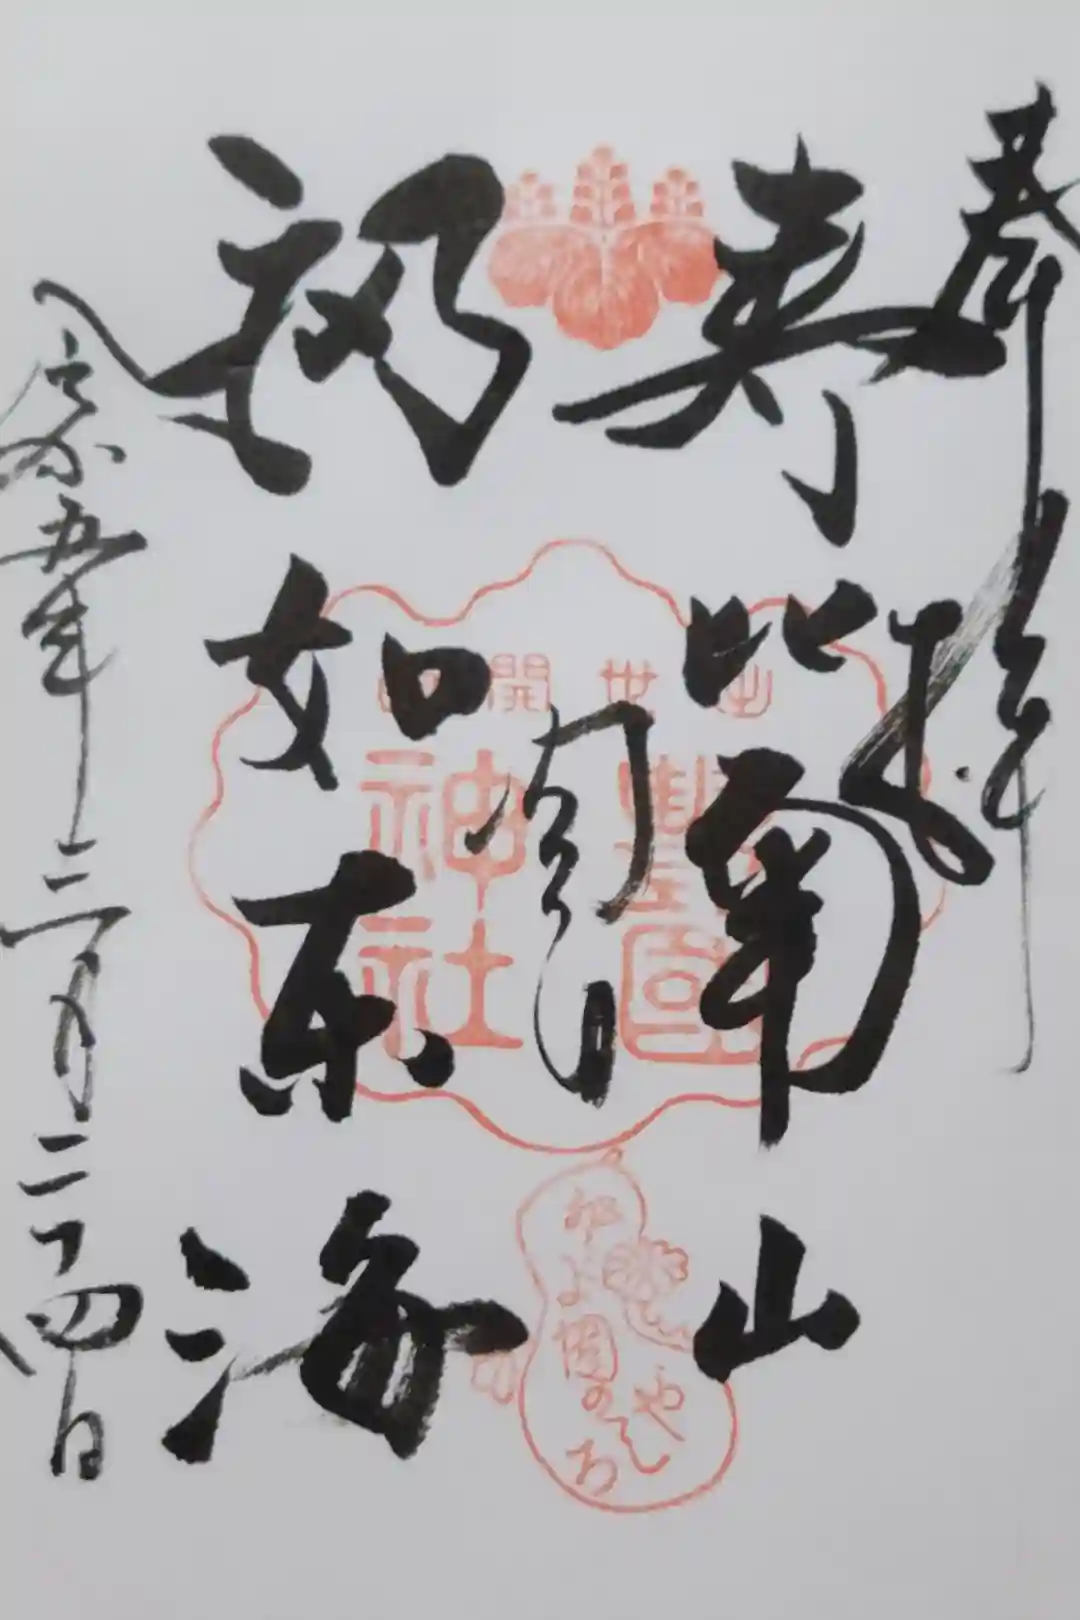 奉拝
寿比南山
福如东海
令和五年三月二十四日
出世開運
豐國
神社